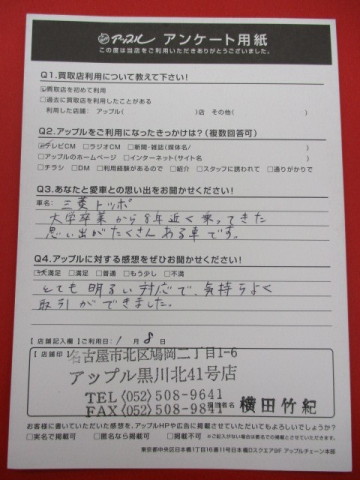 アップル アンケート用紙
この度は当店をご利用いただきありがとうございました。
Q1.買取店利用について教えて下さい!
□買取店を初めて利用
□過去に買取店を利用したことがある
利用した店舗: アップル( )店 その他( )
Q2.アップルをご利用になったきっかけは?(複数回答可)
□テレビCM □ラジオCM □新聞・雑誌(媒体名/ )
□アップルのホームページ □インターネット(サイト名 )
□チラシ □DM □利用経験があるので □紹介 □スタッフに誘われて □通りがかりで
Q3.あなたと愛車との思い出をお聞かせください!
車名: 三菱トッポ
大学卒業から8年近く乗ってきた
思い出がたくさんある車です。
Q4.アップルに対する感想をぜひお聞かせください!
□大満足 □満足 □普通 □もう少し □不満
とても明るい対応で、気持ちよく
取引ができました。
【店舗記入欄】ご利用日: 1 / 8 日
【店舗印】
名古屋市北区鳩岡二丁目1-6
アップル黒川北41号店
TEL〈052〉508-9641
FAX〈052〉508-9841
担当者名 横田竹紀
お客様に書いていただいた感想を、アップルHPや広告に掲載させていただいてもよろしいでしょうか?
□実名で掲載可 □匿名なら掲載可 □掲載不可 ※ご記入がない場合は匿名での掲載とさせていただきます。
東京都中央区日本橋1丁目16番11号日本橋Dスクエア8F アップルチェーン本部